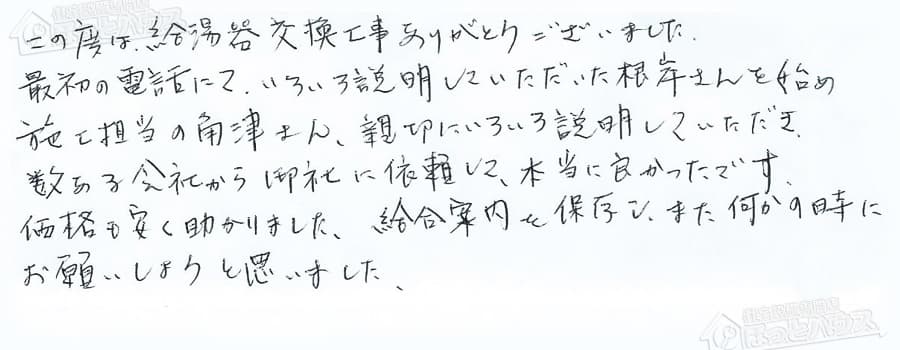 この度は、給湯器交換工事ありがとうございました。
最初の電話にて、いろいろ説明していただいた根岸さんを始め
施工担当の角津さん、親切にいろいろ説明していただき、
数ある会社から御社に依頼して、本当に良かったです。
価格も安く助かりました、給合案内を保存し、また何かの時に
お願いしようと思いました、
住宅設備専門店
ほっとハウス